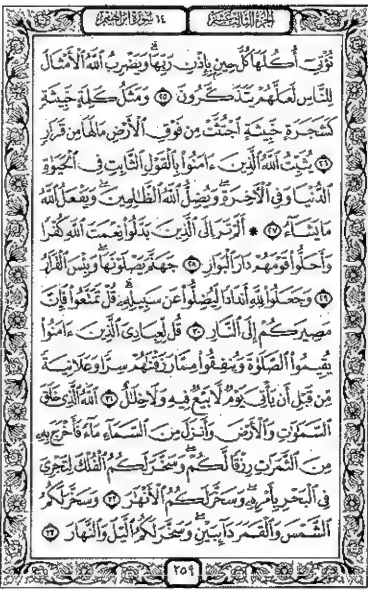 الجزء الثالث عشر ١٤ سورة إبراهيم
تُؤْتِىٓ أُكُلَهَا كُلَّ حِينٍۭ بِإِذْنِ رَبِّهَا ۗ وَيَضْرِبُ ٱللَّهُ ٱلْأَمْثَالَ
لِلنَّاسِ لَعَلَّهُمْ يَتَذَكَّرُونَ ٢٥ وَمَثَلُ كَلِمَةٍ خَبِيثَةٍ
كَشَجَرَةٍ خَبِيثَةٍ ٱجْتُثَّتْ مِن فَوْقِ ٱلْأَرْضِ مَا لَهَا مِن قَرَارٍ
٢٦ يُثَبِّتُ ٱللَّهُ ٱلَّذِينَ ءَامَنُوا۟ بِٱلْقَوْلِ ٱلثَّابِتِ فِى ٱلْحَيَوٰةِ
ٱلدُّنْيَا وَفِى ٱلْءَاخِرَةِ ۖ وَيُضِلُّ ٱللَّهُ ٱلظَّٰلِمِينَ ۚ وَيَفْعَلُ ٱللَّهُ
مَا يَشَآءُ ٢٧ * أَلَمْ تَرَ إِلَى ٱلَّذِينَ بَدَّلُوا۟ نِعْمَتَ ٱللَّهِ كُفْرًا
وَأَحَلُّوا۟ قَوْمَهُمْ دَارَ ٱلْبَوَارِ ٢٨ جَهَنَّمَ يَصْلَوْنَهَا ۖ وَبِئْسَ ٱلْقَرَارُ
٢٩ وَجَعَلُوا۟ لِلَّهِ أَندَادًا لِّيُضِلُّوا۟ عَن سَبِيلِهِۦ ۗ قُلْ تَمَتَّعُوا۟ فَإِنَّ
مَصِيرَكُمْ إِلَى ٱلنَّارِ ٣٠ قُل لِّعِبَادِىَ ٱلَّذِينَ ءَامَنُوا۟
يُقِيمُوا۟ ٱلصَّلَوٰةَ وَيُنفِقُوا۟ مِمَّا رَزَقْنَٰهُمْ سِرًّا وَعَلَانِيَةً
مِّن قَبْلِ أَن يَأْتِىَ يَوْمٌ لَّا بَيْعٌ فِيهِ وَلَا خِلَٰلٌ ٣١ ٱللَّهُ ٱلَّذِى خَلَقَ
ٱلسَّمَٰوَٰتِ وَٱلْأَرْضَ وَأَنزَلَ مِنَ ٱلسَّمَآءِ مَآءً فَأَخْرَجَ بِهِۦ
مِنَ ٱلثَّمَرَٰتِ رِزْقًا لَّكُمْ ۖ وَسَخَّرَ لَكُمُ ٱلْفُلْكَ لِتَجْرِىَ
فِى ٱلْبَحْرِ بِأَمْرِهِۦ ۖ وَسَخَّرَ لَكُمُ ٱلْأَنْهَٰرَ ٣٢ وَسَخَّرَ لَكُمُ
ٱلشَّمْسَ وَٱلْقَمَرَ دَآئِبَيْنِ ۖ وَسَخَّرَ لَكُمُ ٱلَّيْلَ وَٱلنَّهَارَ ٣٣
٢٥٩